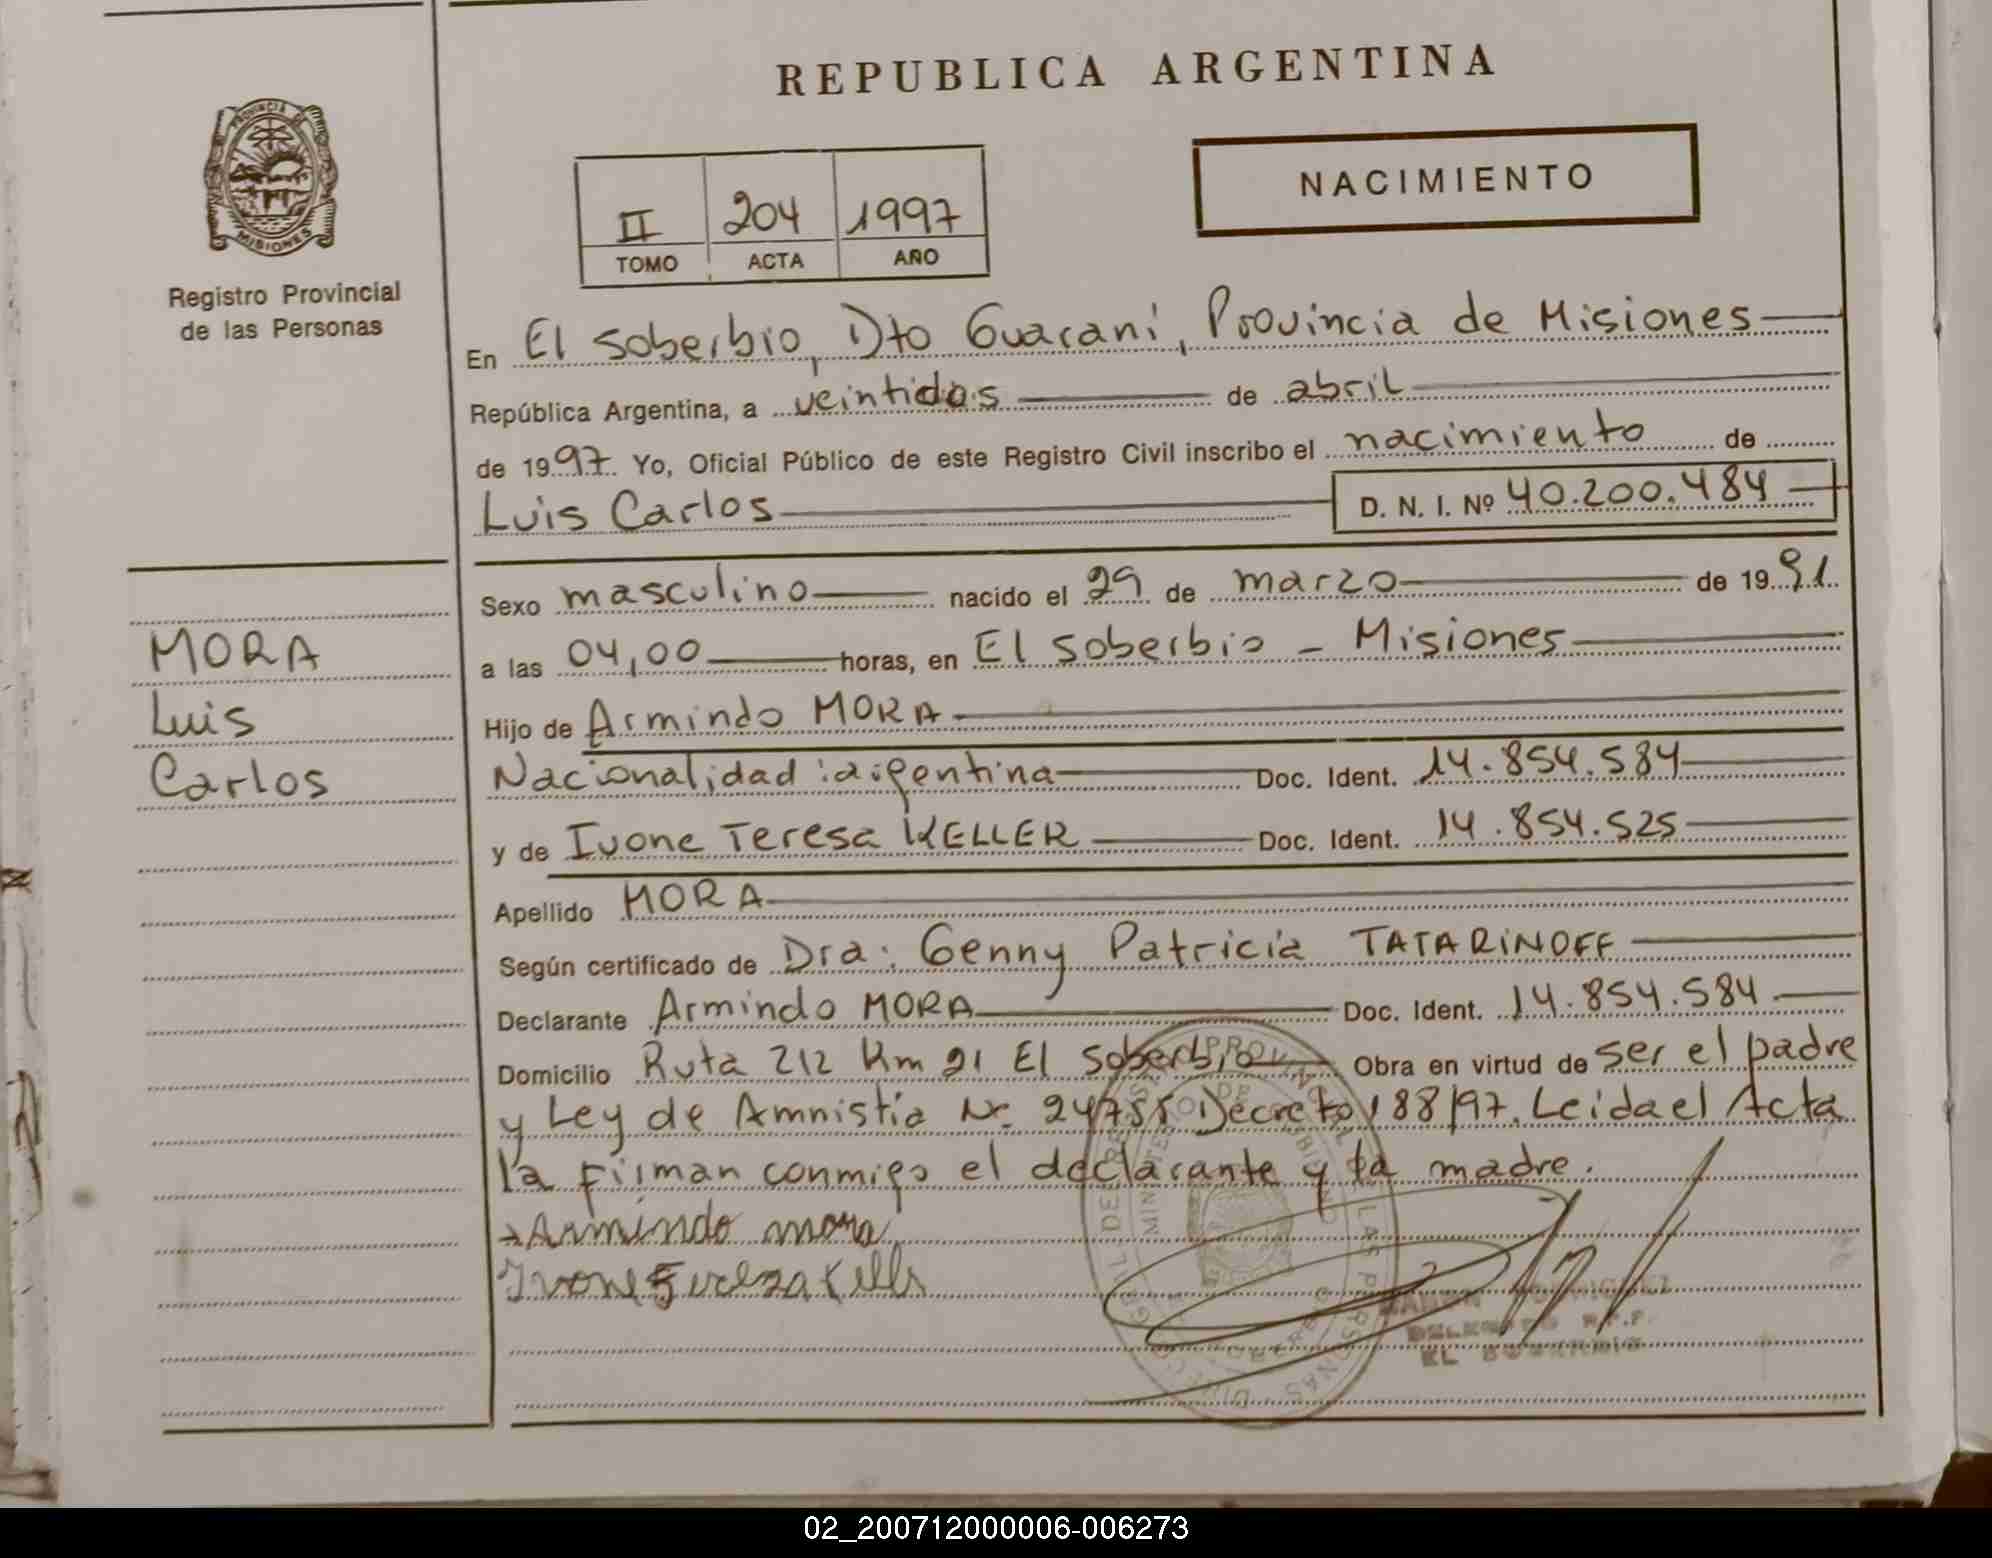 REPUBLICA ARGENTINA
PROVINCIA DE
MISIONES
Registro Provincial
de las Personas
NACIMIENTO
II 204 1997
TOMO ACTA AÑO
En El Soberbio, Dto Guaraní, Provincia de Misiones
República Argentina, a veintidos de abril
de 1997 Yo, Oficial Público de este Registro Civil inscribo el nacimiento de
Luis Carlos D. N. I. Nº 40.200.484
Sexo masculino nacido el 29 de marzo de 1991
a las 04,00 horas, en El Soberbio - Misiones
Hijo de Armindo MORA
Nacionalidad: argentina Doc. Ident. 14.854.584
y de Ivone Teresa KELLER Doc. Ident. 14.854.525
Apellido MORA
Según certificado de Dra. Genny Patricia TATARINOFF
Declarante Armindo MORA Doc. Ident. 14.854.584
Domicilio Ruta 212 Km 21 El Soberbio Obra en virtud de ser el padre
y Ley de Amnistía Nº 24755 Decreto 188/97. Leida el Acta
la firman conmigo el declarante y la madre.
Armindo mora
Ivone
EL SOBERBIO
MORA
Luis
Carlos
02_200712000006-006273